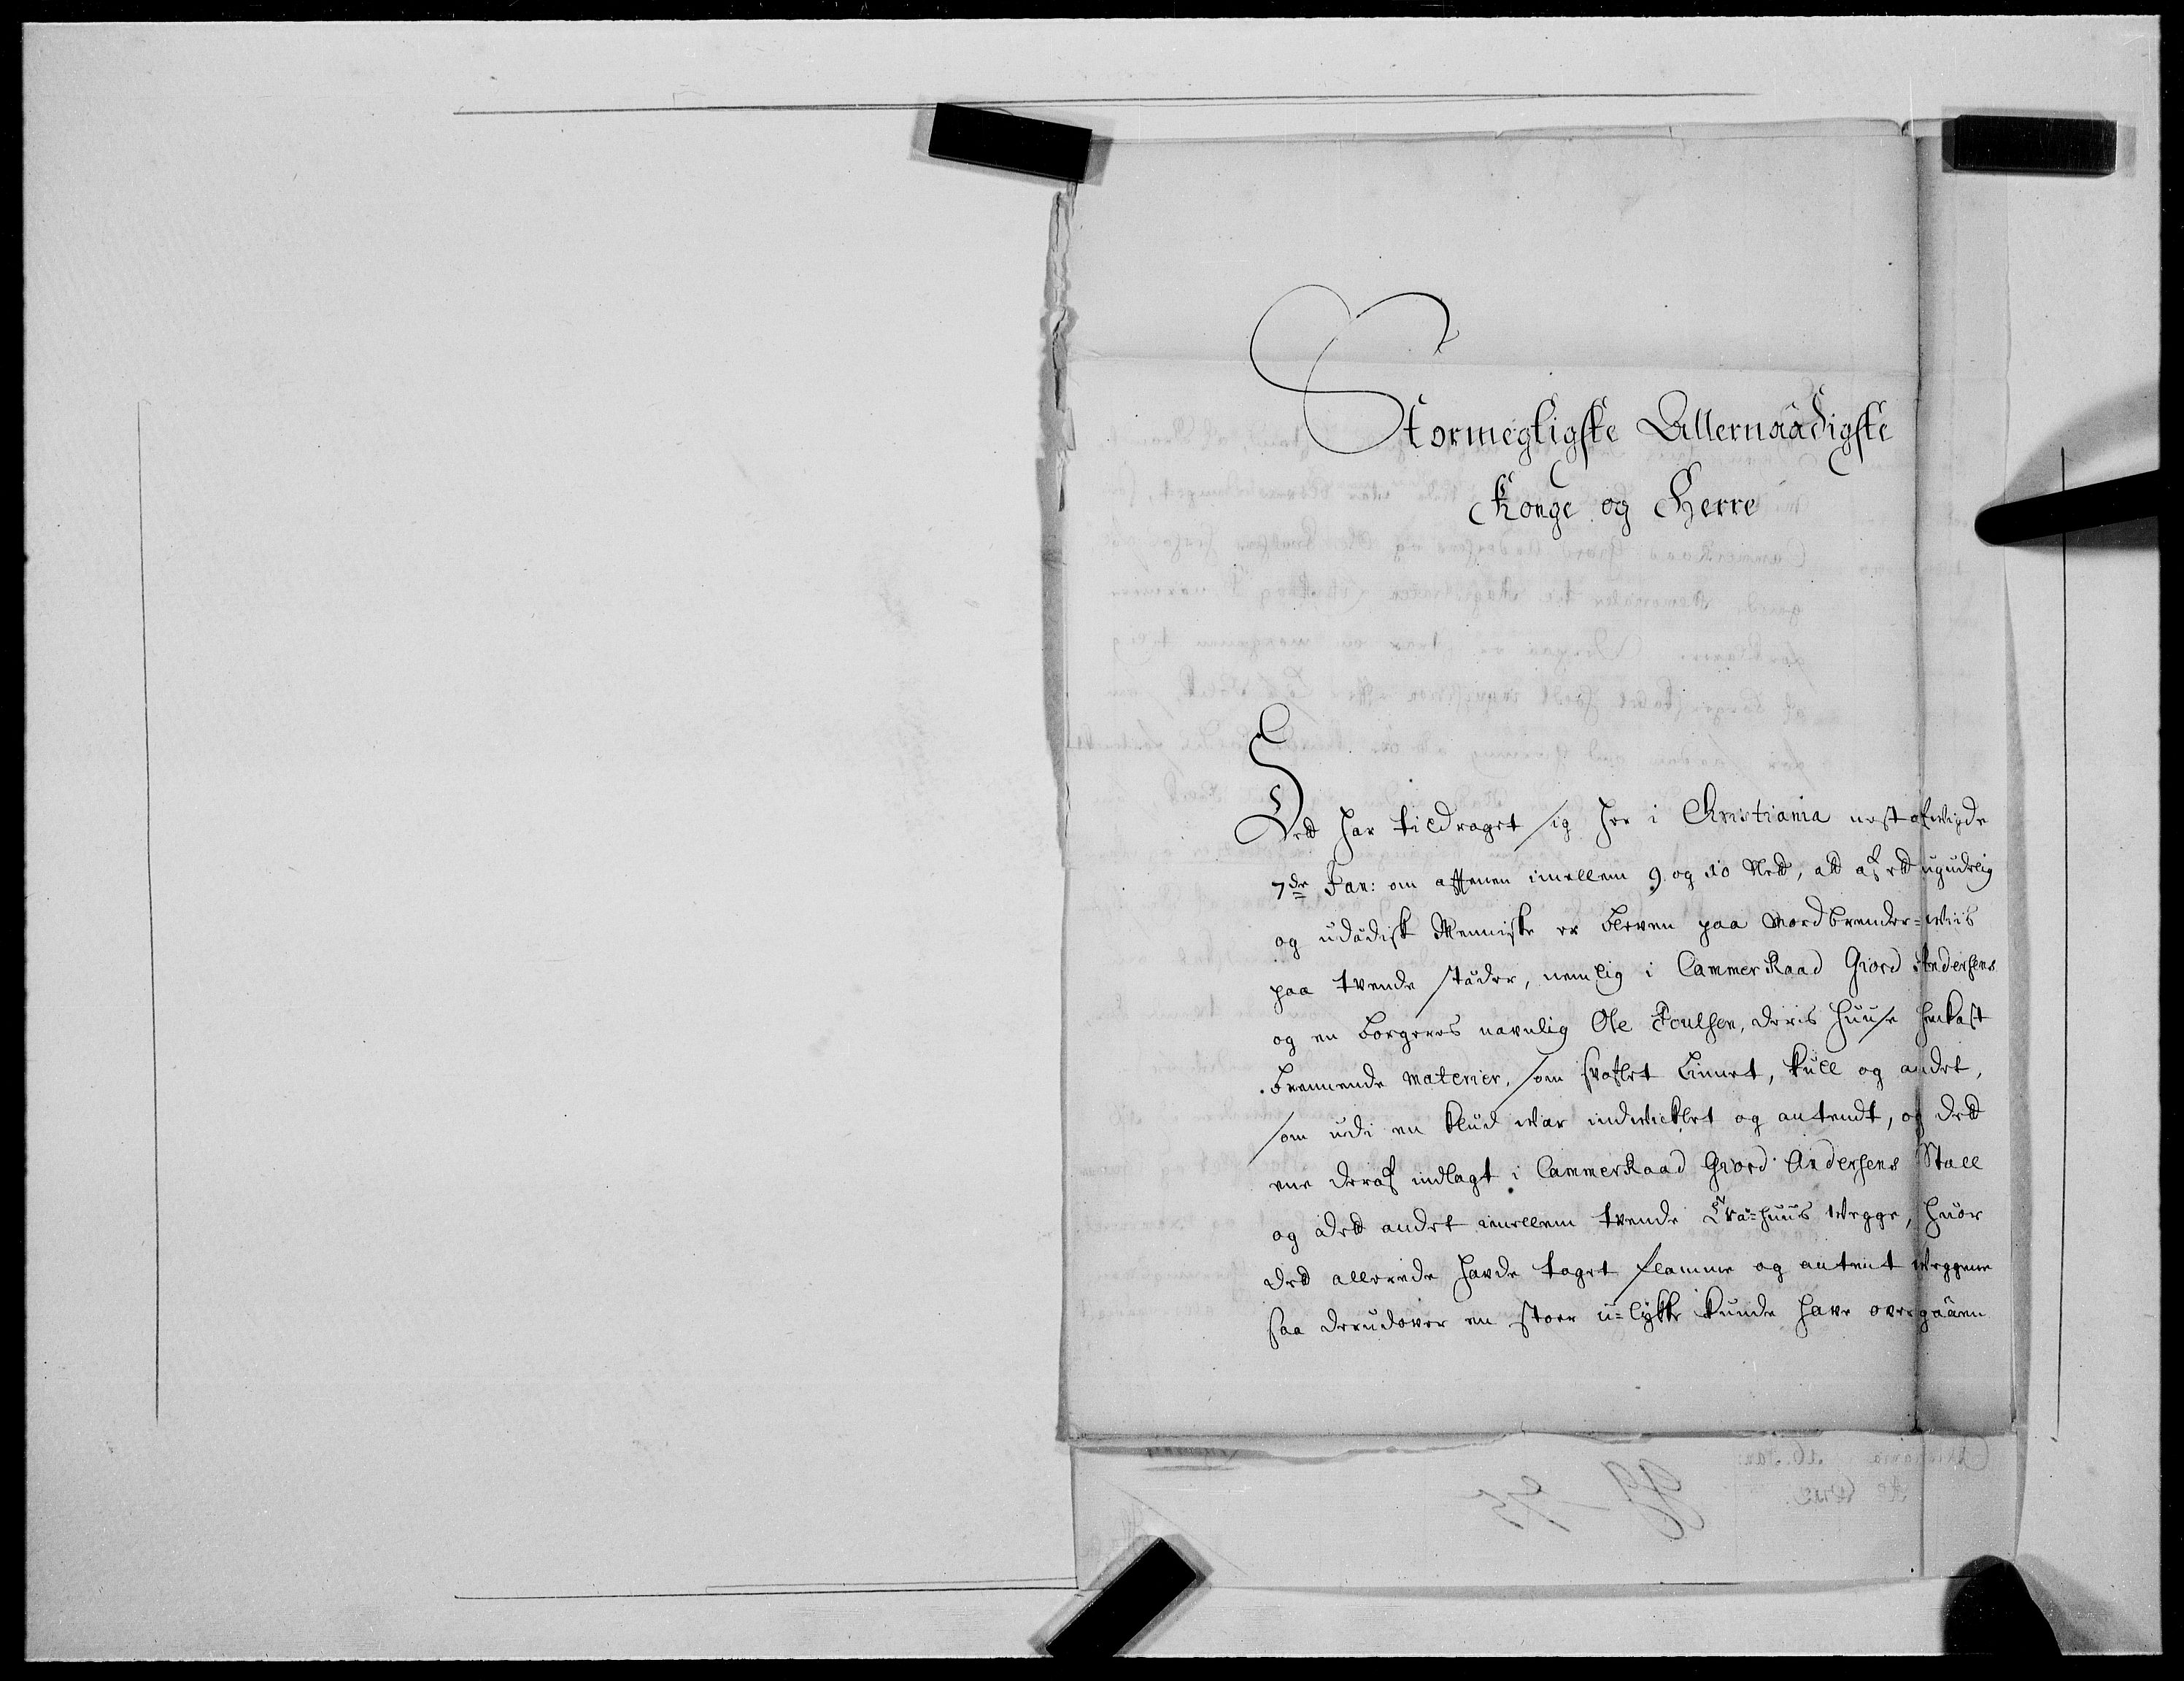 Stormegtigste Allernaadigste
Konge og Herre
Ded har tildraget sig her i Christiania nest afwigde
7de Jan: om afftenen imellem 9 og 10 Slett, att af ett ugudelig
og udädisk Menniske er bleven paa Mordbrender=wiis
paa tvende städer, nemlig i Cammer Raad Giord Andersens
og en borgeres navnlig Ole Poulsen, deris huuse henkast
brennende materier, som svoflet Linnet, kull og andet,
som udi en klud war indwicklet og antendt, og dett
ene deraf indlagt i CammerRaad Giord Andersens Stall
og dett andet imellem tvende Trä=huus wegge, huor
ded allerede hafde taget flamme og antent weggene
saa derudover en stoer u=lykke kunde have overgaaen